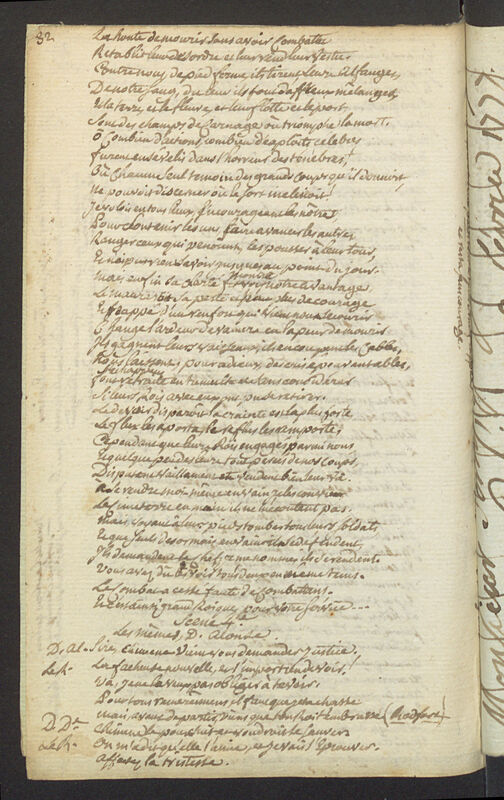 32
La honte de mourir sans avoir combattu
Rétablit leur desordre et leur rend leur vertu
Contre nous de pied ferme ils tirent leurs alfanges,
De notre sang, du leur ils font d'affreux melanges
Et la terre, et le fleuve, et leur flotte et le port
Sont des champs de Carnage où triomphe la mort.
ô Combien d'actions, combien d'exploits celebres
furent ensevelis dans l'horreur des tenebres,!
Où chacun seul temoin des grands coups qu'il donnoit
Ne pouvoit discerner où le sort inclinoit!
J'allois en tous lieux, Encourageant les nôtres
Pour soutenir les uns, faire avancer les autres
Ranger ceux qui venoient, les pousser à leur tour,
Et n'ai pu rien savoir jusques au point du jour.
mais enfin sa clarté montre notre avantage
Le maure vit sa perte et perd le courage
Et frappé d'un renfort qui vient nous secourir
Change l'ardeur de vaincre en la peur de mourir
Ils gagnent leurs vaisseaux, chacun coupe les Cables,
Nous laissent pour adieux des cris epouvantables,
font retraite en tumulte et sans considerer
Si leurs Rois avec eux ont pu se retirer.
Le devoir disparoit la crainte est la plus forte
Le flux les apporta, le reflux les remporte;
Cependant que leurs Rois engagés parmi nous
Et quelque peu des leurs tout percés de nos coups,
Disputent vaillamment et vendent bien leur vie.
A se rendre moi-même en vain je les convie
Le cimeterre en main ils ne m'ecoutent pas.
mais voyant à leurs pieds tomber tous leurs soldats
Et que seuls desormais en vain ils se defendent,
Ils demandent le chef, je me nomme, ils se rendent.
Vous avez dû les voir tous deux en même tems.
Le combat a cessé faute de combattans.
Scene 4e
Les mêmes, D. Alonse
D. Al. Sire, Chimene vient vous demander justice.
Le R. La facheuse nouvelle, et l'importun devoir!
Va, je ne la veux pas obliger à te voir.
Pour tous remerciemens il faut que je te chasse
mais, avant de partir, viens que ton Roi t'embrasse (Rodr. sort)
D. De. Chimene le poursuit et voudroit le sauver
Le R. On m'a dit qu'elle l'aime, et je vais l'eprouver.
Affectez la tristesse.